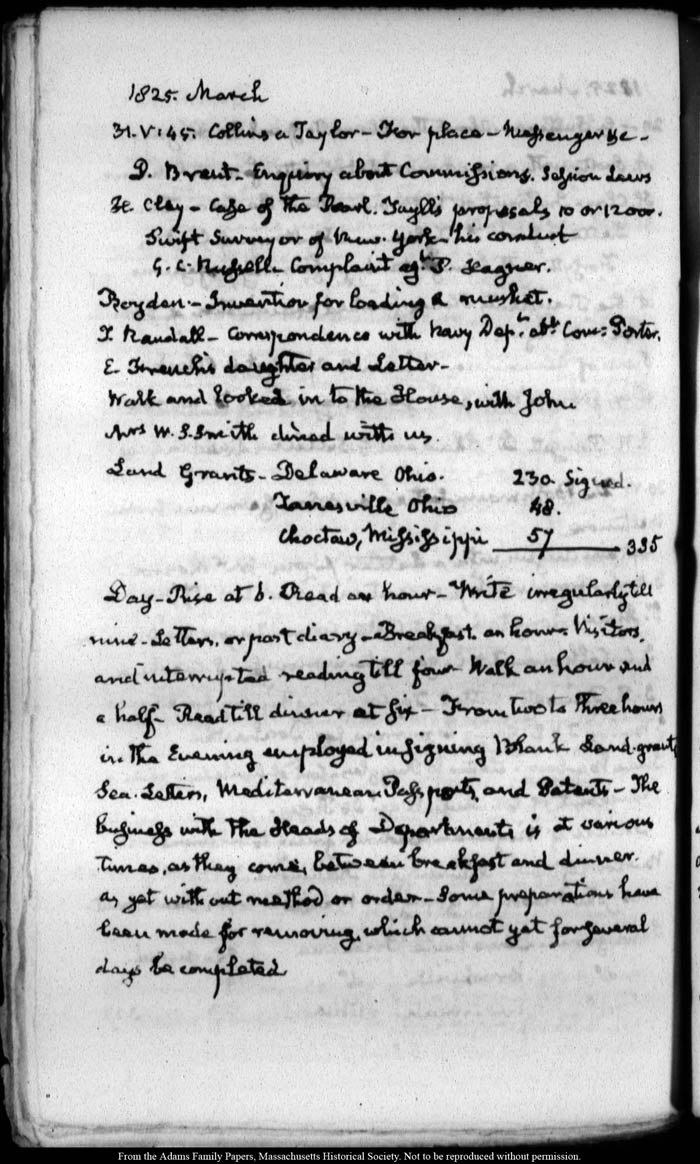 1825. March
31. V:45. Collins a Taylor - For place - Messenger &c -
D. Brent - Enquiry about Commissions. Session Laws
H. Clay - Case of the Pearl. Tayll's proposals 10 or 1200.
Swift Surveyor of New-York - his conduct
G. C. Russell - Complaint agt. P. Hagner.
Boyden - Invention for loading a musket.
T. Randall - Correspondence with Navy Dept. abt. Com: Porter.
E. French's daughter and Letter -
Walk and looked in to the House, with John
Mrs W. S. Smith dined with us.
Land Grants - Delaware Ohio. 230. Signed.
Zanesville Ohio 48.
Choctaw, Mississippi 57 335
Day - Rise at 6. Read an hour - Write irregularly till
nine - Letters, or past diary - Breakfast an hour. Visitors,
and interrupted reading till four. Walk an hour and
a half - Read till dinner at six - From two to three hours
in the Evening employed in signing Blank Land-grants
Sea-Letters, Mediterranean Passports, and Patents - The
business with the Heads of Departments is at various
times, as they come, between breakfast and dinner.
as yet without method or order - Some preparations have
been made for removing, which cannot yet for several
days be completed
From the Adams Family Papers, Massachusetts Historical Society. Not to be reproduced without permission.